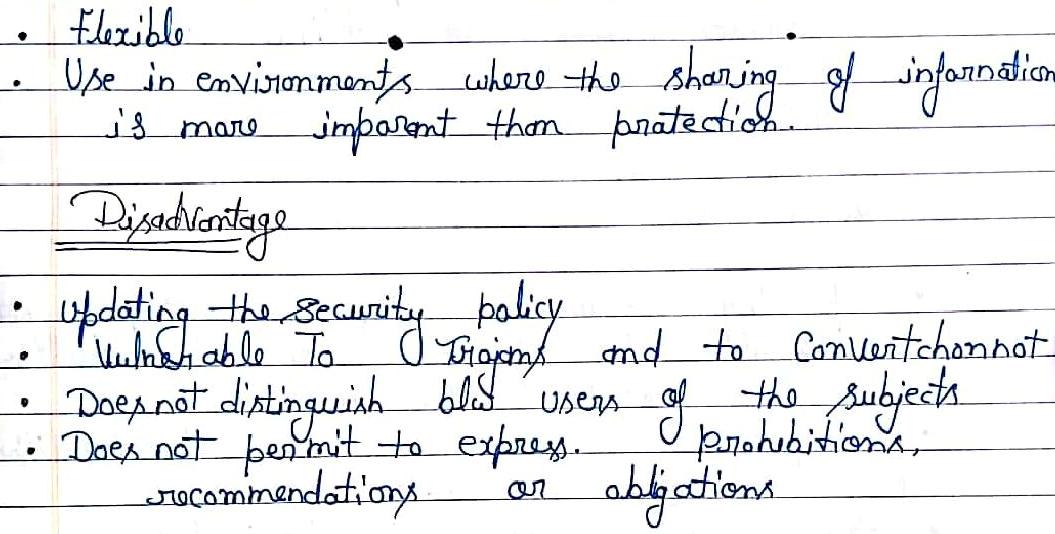 • Flexible
• Use in environments where the sharing of information
is more imporent than protection.
Disadvantage
• Updating the security policy
• Vulnerable To Trojans and to Convertchannot
• Does not distinguish b/w users of the subjects
• Does not permit to express. prohibitions,
recommendations or obligations